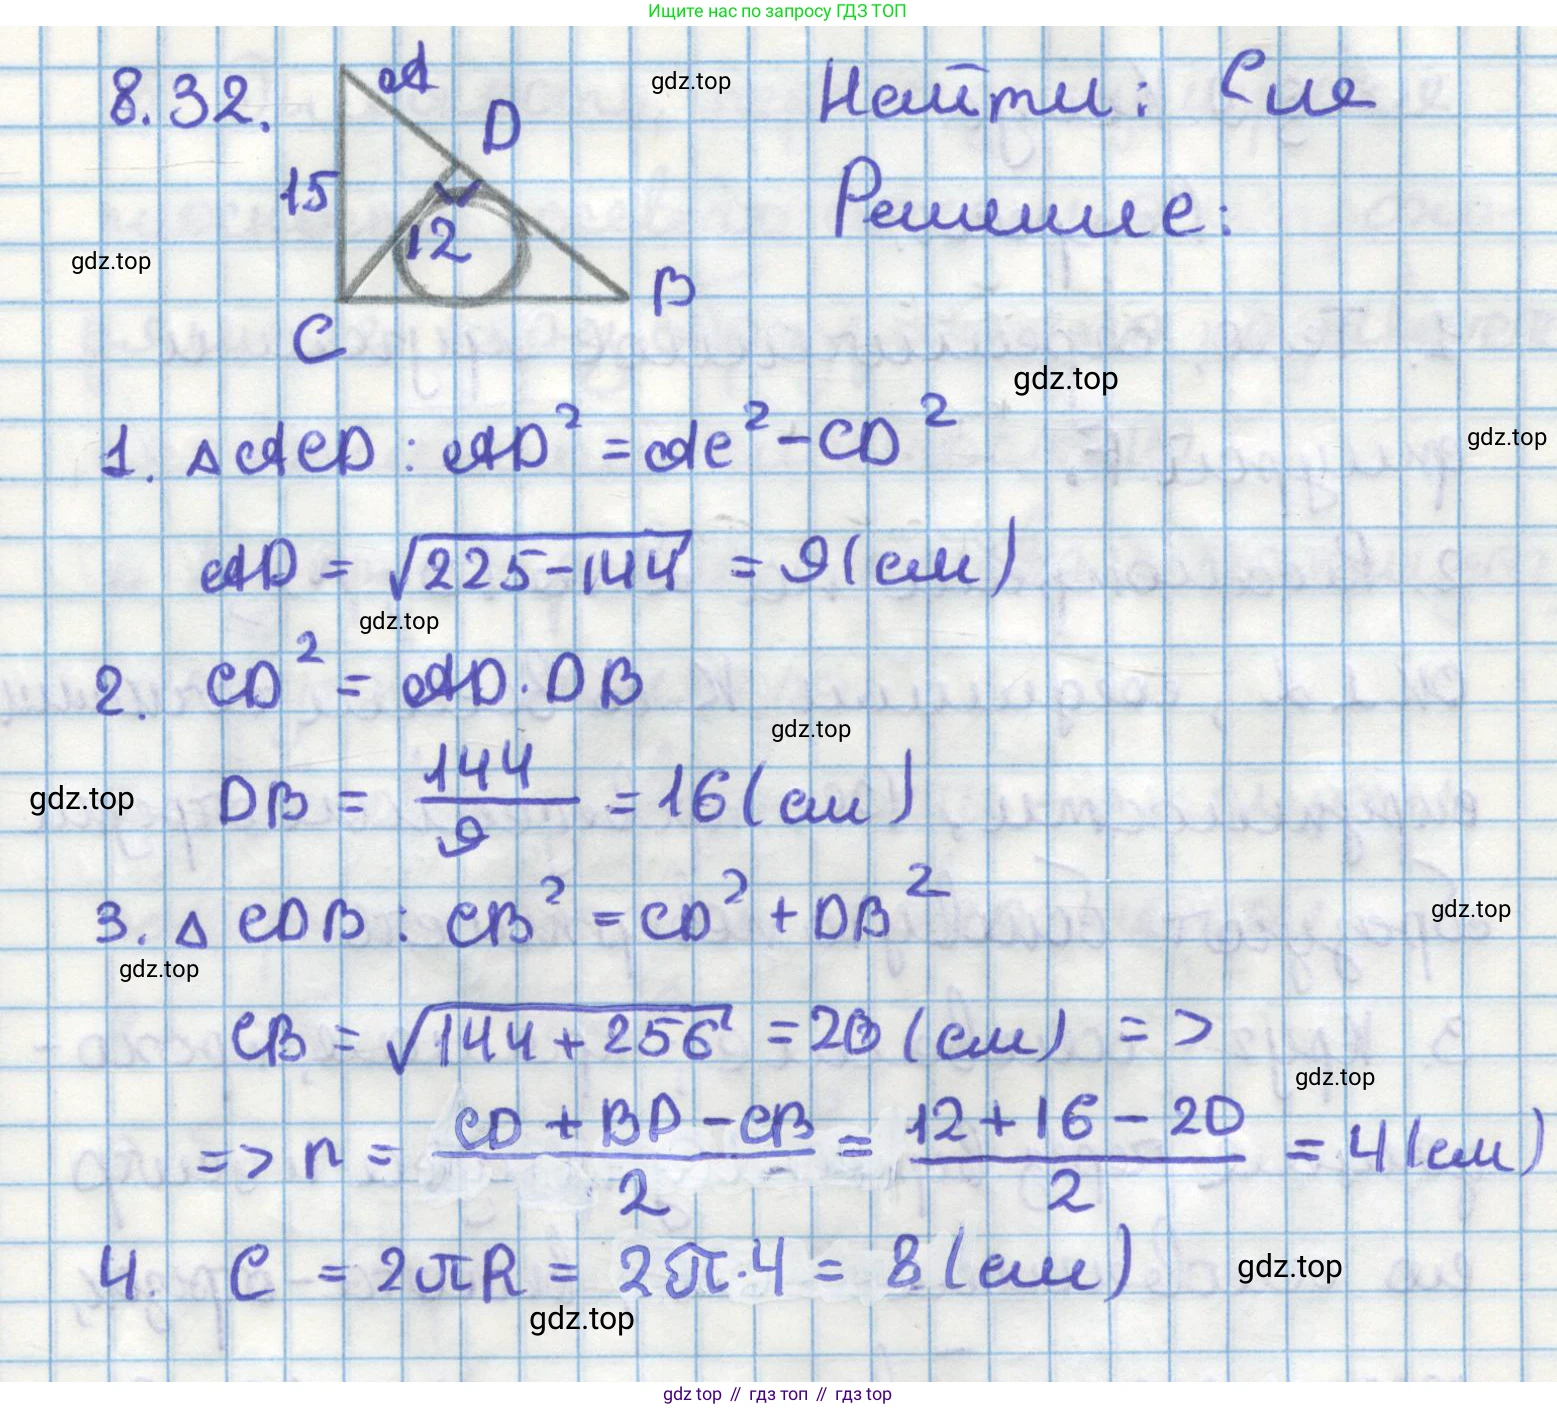 Ищите нас по запросу ГДЗ ТОП
8.32.
A
D
15
12
B
C
gdz.top
Найти:
Решение:
gdz.top
gdz.top
gdz.top
1. △ACD : AD² = AC² − CD²
gdz.top
AD = √225−144 = 9 (см)
gdz.top
2. CD² = AD · DB
gdz.top
gdz.top
DB = 144/9 = 16 (см)
3. △ CDB : CB² = CD² + DB²
gdz.top
gdz.top
CB = √144 + 256 = 20 (см) =>
gdz.top
=> r = CD + BD − CB/2 = 12 + 16 − 20/2 = 4 (см)
4. C = 2πR = 2π·4 = 8 (см)
gdz.top
gdz.top
gdz top // гдз топ // гдз top